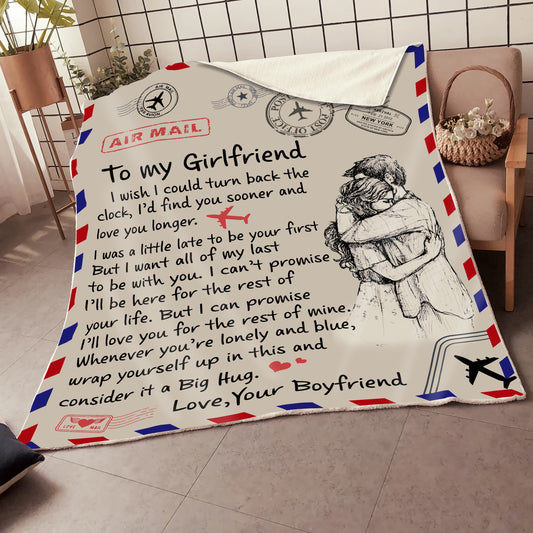 AIR MAIL
NEW YORK
POST OFFICE
AIR MAIL
To my Girlfriend
I wish I could turn back the
clock, I'd find you sooner and
love you longer.
I was a little late to be your first
But I want all of my last
to be with you. I can't promise
I'll be here for the rest of
your life. But I can promise
I'll love you for the rest of mine.
Whenever you're lonely and blue,
wrap yourself up in this and
consider it a Big Hug.
Love,Your Boyfriend
LOVE MAIL